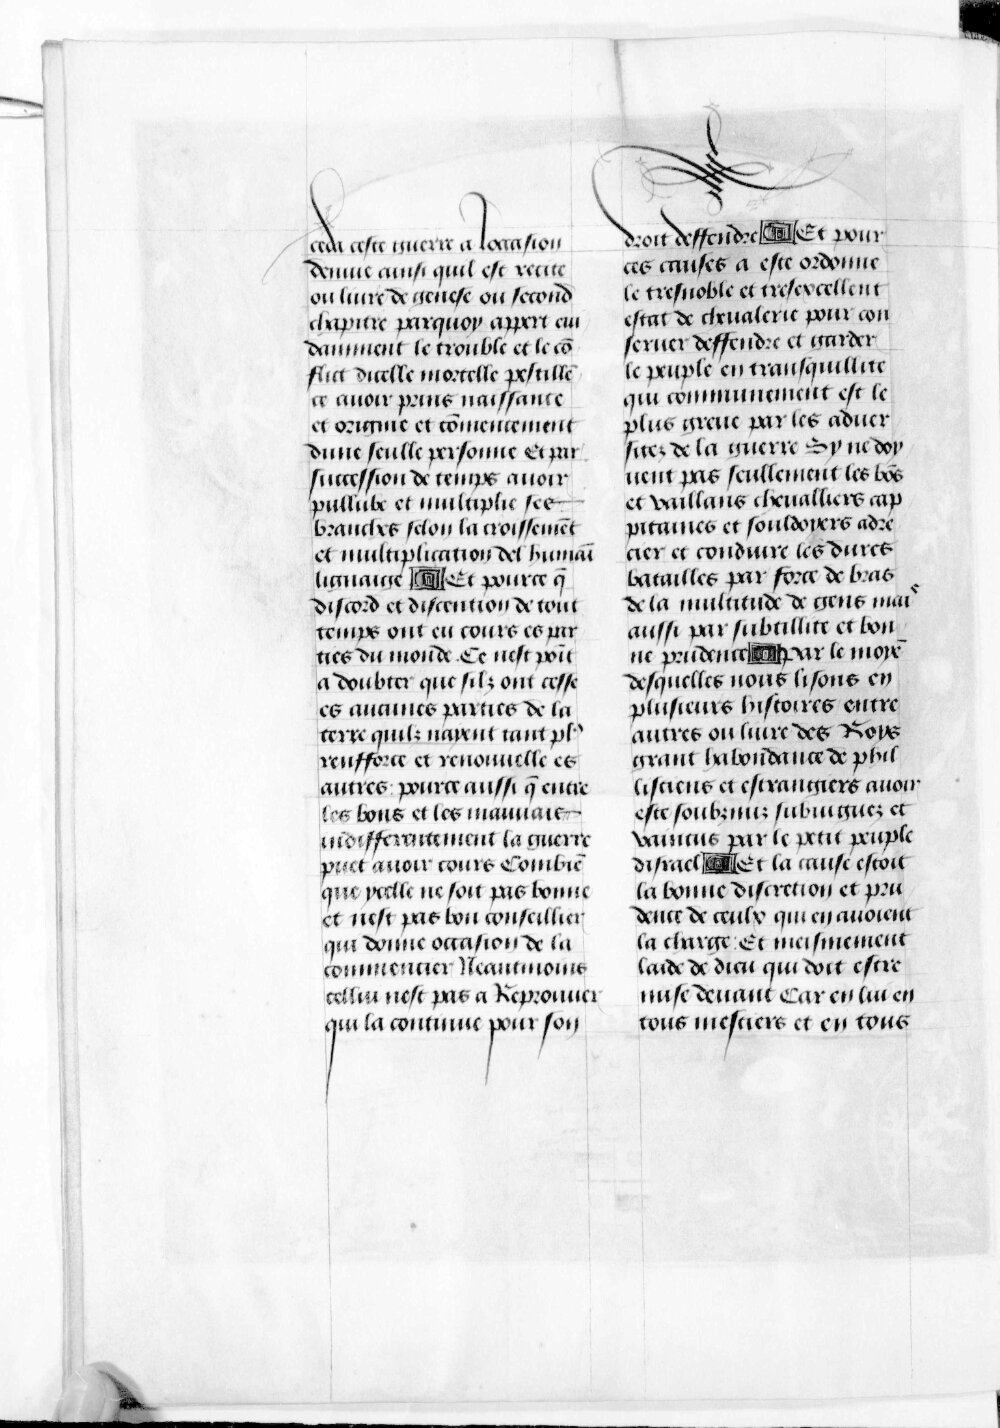 ceda ceste guerre a loccasion
denuie ainsi quil est recite
ou liure de genese ou second
chapitre parquoy appert eui
danment le trouble et le cō
flict dicelle mortelle pestillē
ce auoir prins naissance
et origine et cōmencement
dune seulle personne Et par
succession de temps auoir
pullule et multiplie ses
branches selon la croissemēt
et multiplication del humaī
lignaige Et pource q̄
discord et discention de tout
temps ont eu cours es par
ties du monde. Ce nest poīt
a doubter que silz ont cesse
es aucunes parties de la
terre quilz nayent tant plꝰ
renfforce et renouuelle es
autres: pource aussi q̄ entre
les bons et les mauuais
indifferentement la guerre
puet auoir cours Combiē
que ycelle ne soit pas bonne
et nest pas bon conseillier
qui donne occasion de la
commencier Neantmoins
cellui nest pas a Reprouuer
qui la continue pour son
droit deffendre Et pour
ces causes a este ordonne
le tresnoble et tresexcellent
estat de cheualerie pour con
seruer deffendre et garder
le peuple en transquillite
qui communement est le
plus greue par les aduer
sitez de la guerre Sy ne doy
uent pas seullement les bōs
et vaillans cheualliers cap
pitaines et souldoyers adre
cier et conduire les dures
batailles par force de bras
de la multitude de gens mais
aussi par subtillite et bon
ne prudence Par le moyē
desquelles nous lisons en
plusieurs histoires entre
autres ou liure des Roys
grant habondance de phil
listiens et estrangiers auoir
este soubzmiz subiuguez et
vaincus par le petit peuple
disrael Et la cause estoit
la bonne discretion et pru
dence de ceulx qui en auoient
la charge: Et meismement
laide de dieu qui doit estre
mise deuant Car en lui en
tous mestiers et en tous